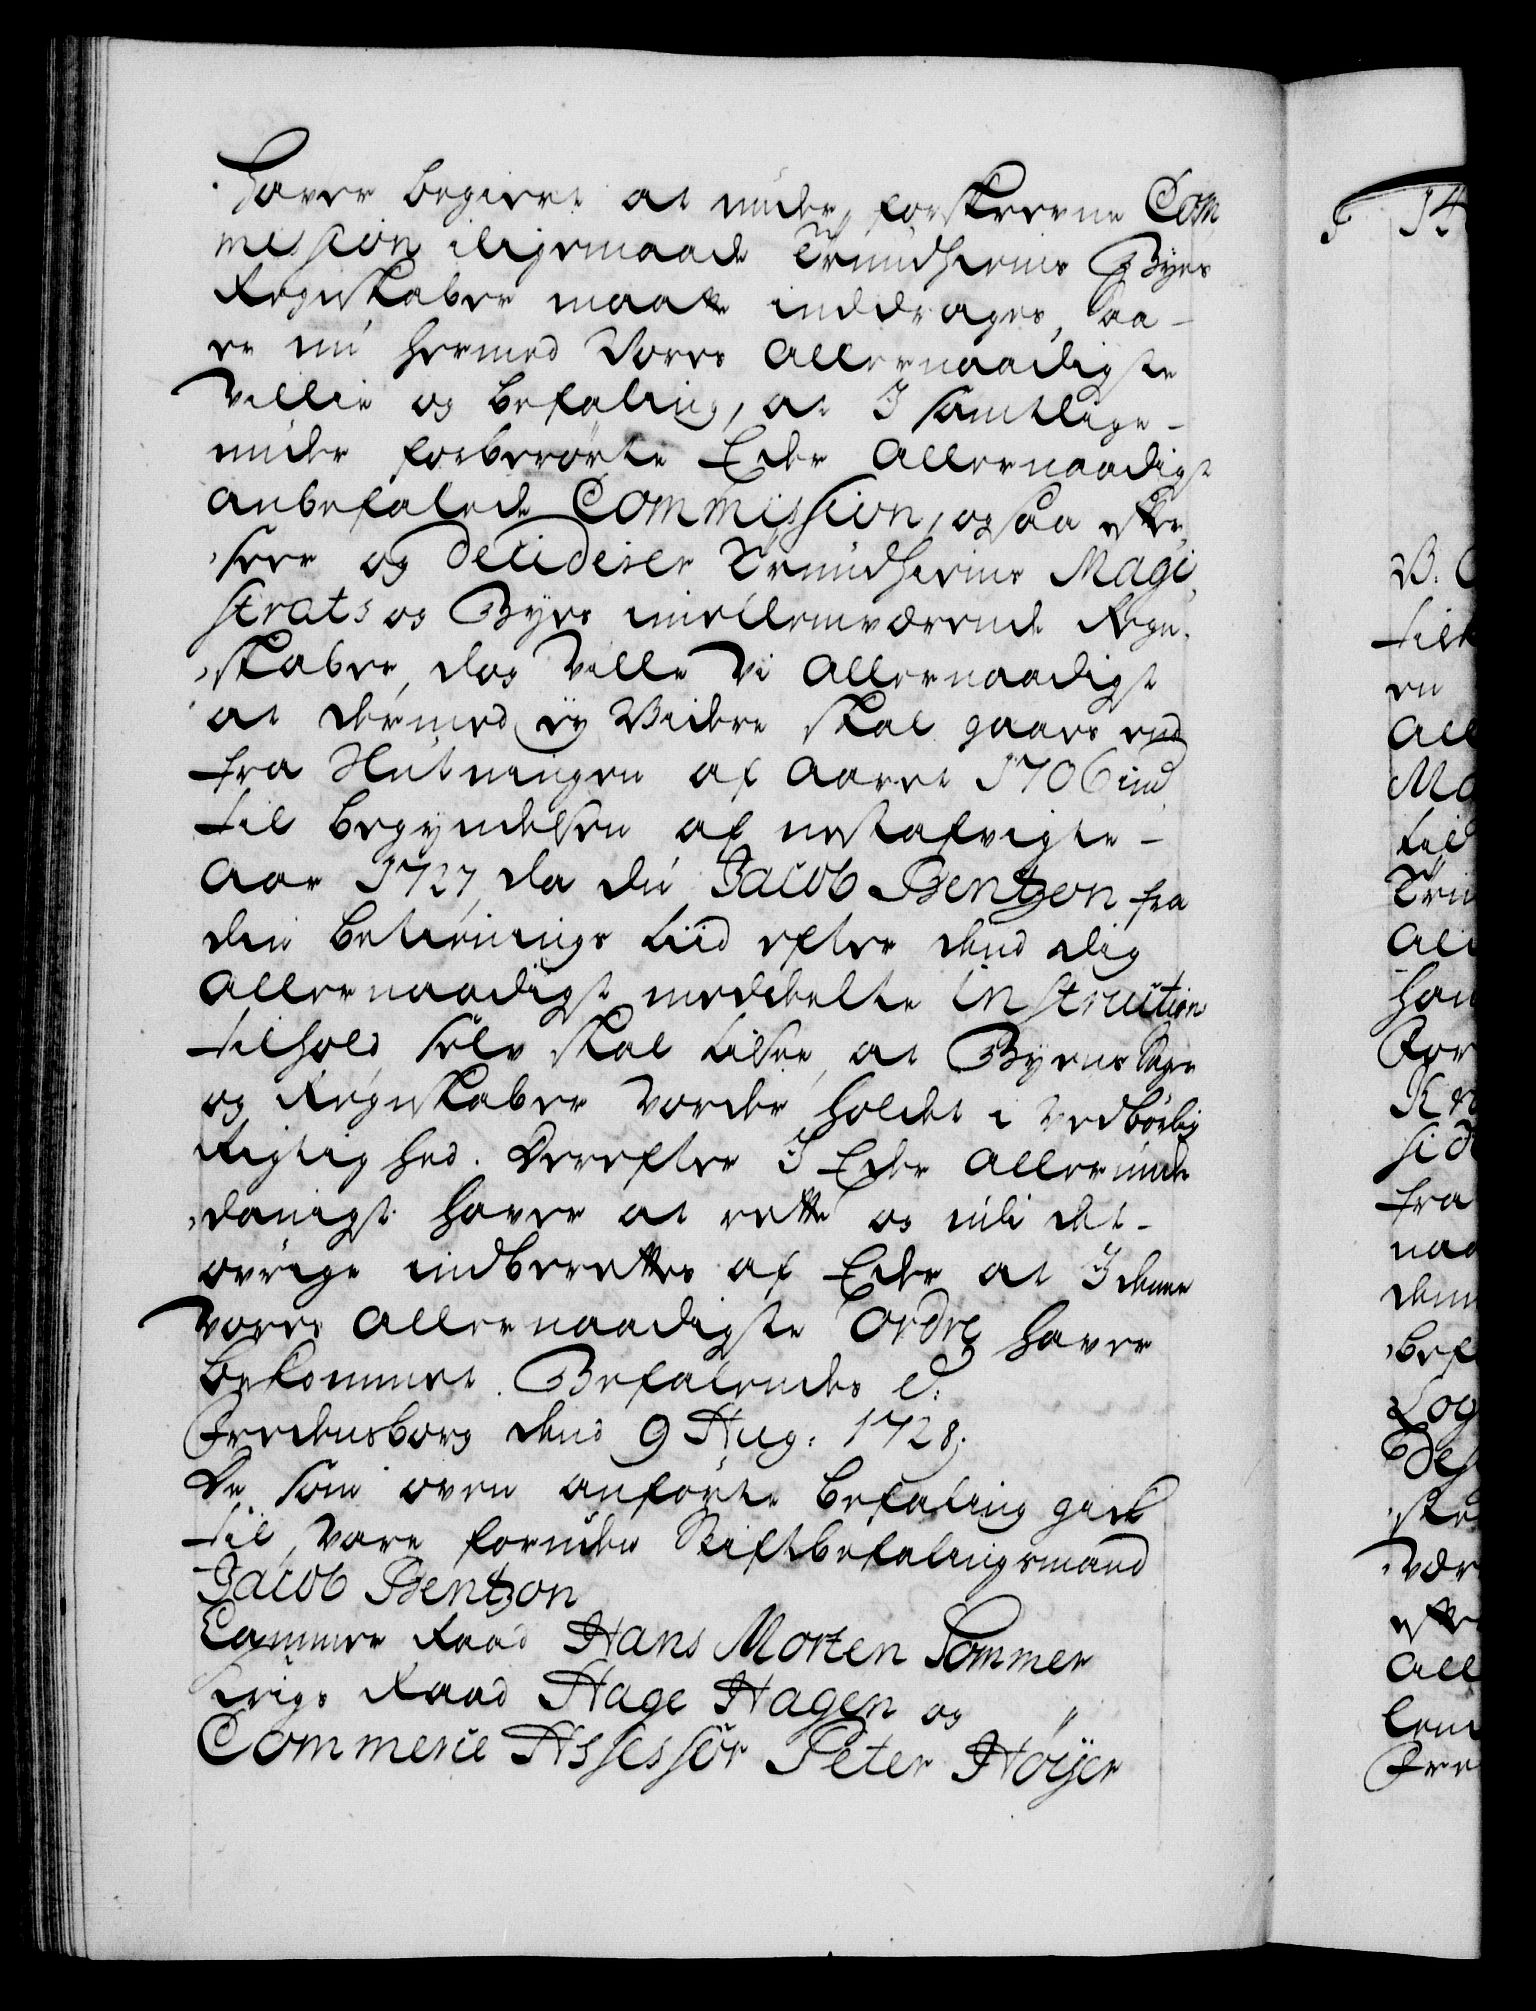 haver begieret at under forskrevne Com
mission iligemaade Trundhiems Byes
Regnskaber maatte inddrages, Saa
er nu hermed Vores Allernaadigste
Villie og befaling, at I samtlige
under forberørte Eder Allernaadigst
anbefalede Commission, ogsaa efter
seer og decideser Trundhiems Magi
strats og Byes imellemværende Regn
skaber, dog Ville Vi Allernaadigst
at dermed ey Videre skal gaaes end
fra Slutningen af Aaret 1706 ind
til begyndelsen af nestafvigte
Aar 1727, da du Jacob Bentzon fra
din betienings tiid efter dend dig
Allernaadigst meddeelte Instruction
tilhold selv skal tilsee, at Byens Sager
og Regnskaber vorder holdet i Vedbørlig
Rigtighed. Derefter I Eder Allerunder
danigst haver at rette og udi det
øvrige indberettes af Eder at I denne
Vores Allernaadigste Ordre haver
bekommet. Befalendes etc:
Fredensborg dend 9 Aug: 1728.
De som oven anførte befaling gick
til, vare foruden Stiftbefalingsmand
Jacob Bentzon
Cammer Raad Hans Morten Sommer
Krigs Raad Hage Hagen og
Commercie Assessor Peter Høyer